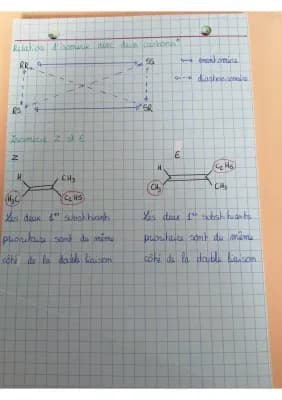 Relation d'isomérie avec deux carbones*
RR SS
énantiomère
diastéréoisomère
RS SR
Isomérie Z et E
Z E
H CH3
H3C C2H5
H C2H5
CH3 CH3
Les deux 1er substituants
prioritaire sont du même
côté de la double liaison
Les deux 1er substituants
prioritaire sont du même
côté de la double liaison